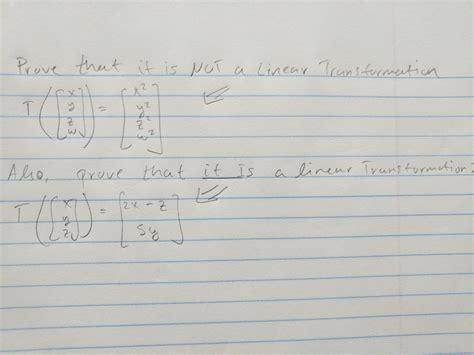 Prove that it is NOT a Linear Transformation
T([x y z w]) = [x² y² z² w²]
Also, prove that it is a linear Transformation:
T([x y z]) = [2x - z 5y]